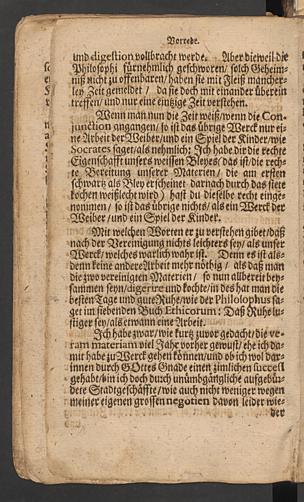 Vorrede.
und digestion vollbracht werde. Aber dieweil die
Philosophi fürnehmlich geschworen / solch Geheim-
niß nicht zu offenbaren / haben sie mit Fleiß mancher-
ley Zeit gemeldet / da sie doch mit einander überein
treffen / und nur eine eintzige Zeit verstehen.
Wenn man nun die Zeit weiß / wenn die Con-
junction angangen / so ist das übrige Werck nur ei-
ne Arbeit der Weiber / und ein Spiel der Kinder / wie
Socrates saget / als nehmlich: Ich habe dir die rechte
Eigenschafft unsers weissen Bleyes / das ist / die rech-
te Bereitung unserer Materien / die am ersten
schwartz als Bley erscheinet / darnach durch das stete
kochen weißlecht wird) hast du dieselbe recht einge-
nommen / so ist das übrige nichts / als ein Werck der
Weiber / und ein Spiel der Kinder.
Mit welchen Worten er zu verstehen gibet / daß
nach der Vereinigung nichts leichters sey / als unser
Werck / welches warlich wahr ist. Denn es ist als-
denn keine andere Arbeit mehr nöthig / als daß man
die zwo vereinigten Materien / so nun allbereit bey-
sammen seyn / digerire und kochte / in des hat man die
besten Tage und gute Ruhe / wie der Philolophus sa-
get im siebenden Buch Ethicorum: Daß Ruhe lu-
stiger sey / als etwann eine Arbeit.
Ich habe zwar / wie kurtz zuvor gedacht / die ve-
ram materiam viel Jahr vorher gewust / ehe ich da-
mit habe zu Werck gehen können / und ob ich wol dar-
innen durch GOttes Gnade einen zimlichen success
gehabt / bin ich doch durch unümbgängliche aufgebür-
dete Stadtgeschäffte / wie auch nicht weniger wegen
meiner eigenen grossen negotien davon leider wie-
der